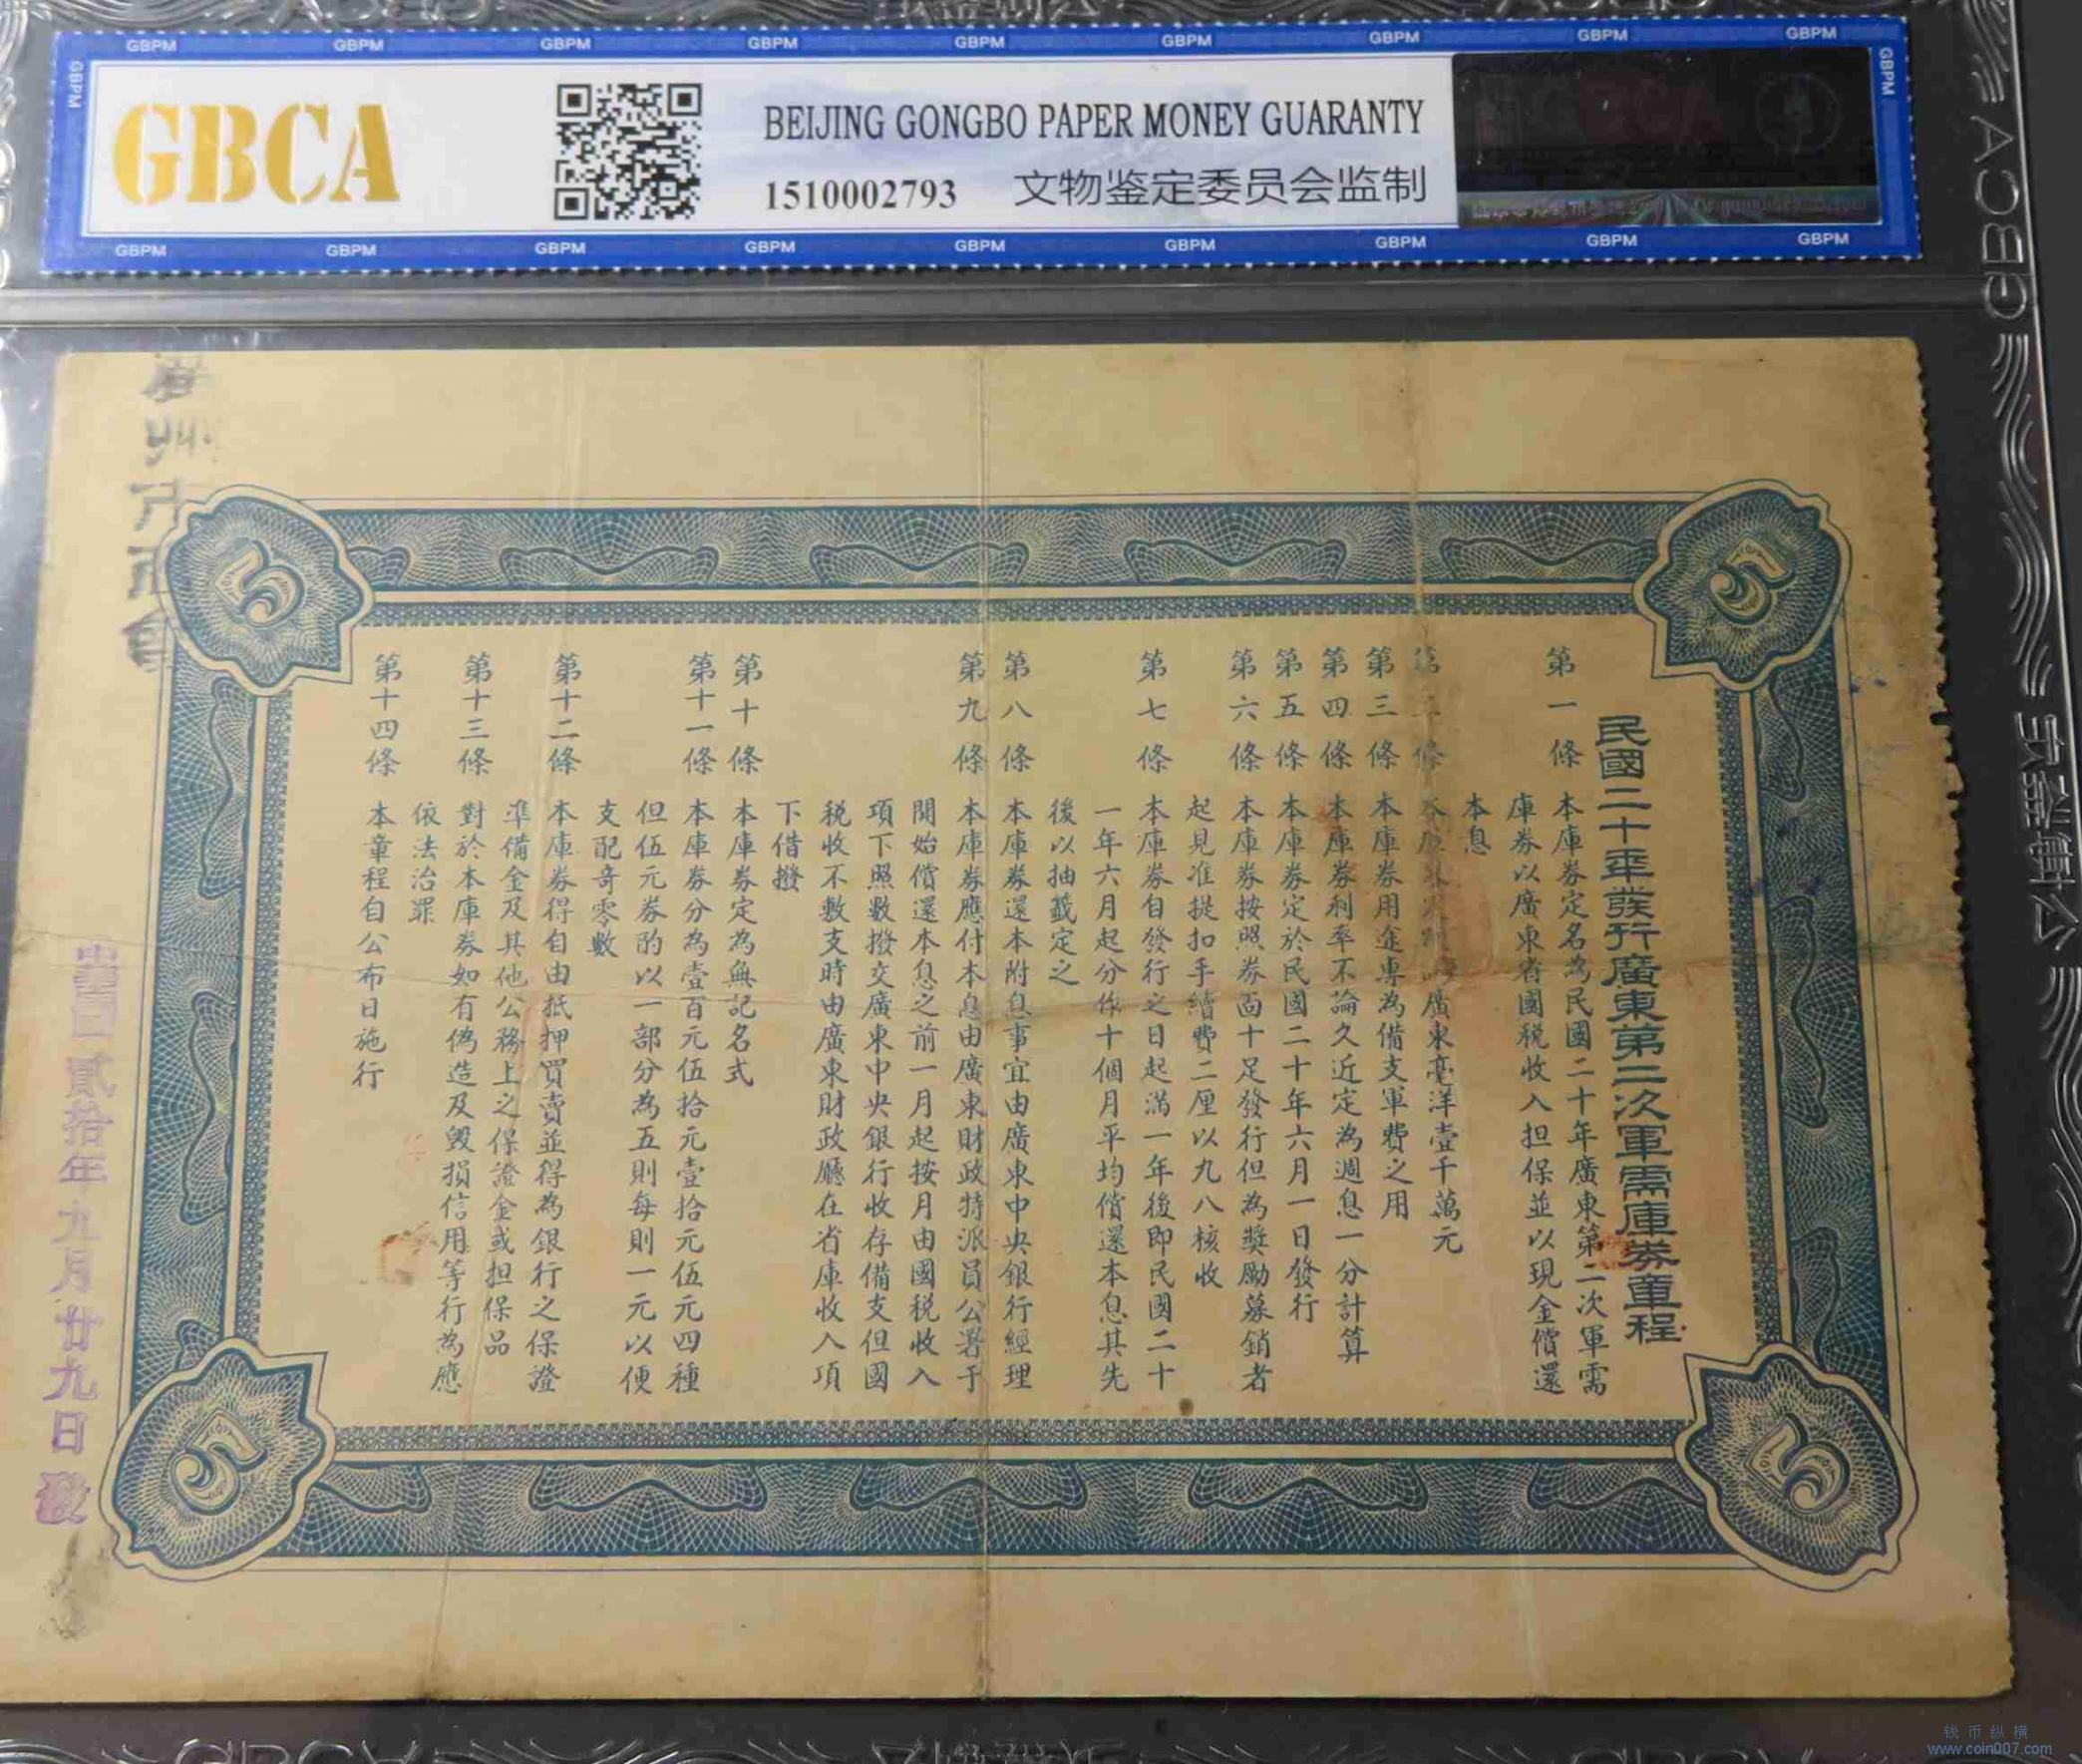 GBPM GBPM GBPM GBPM GBPM GBPM GBPM GBPM GBPM
GBPM
GBPM
GBCA
BEIJING GONGBO PAPER MONEY GUARANTY
1510002793 文物鉴定委员会监制
GBPM GBPM GBPM GBPM GBPM GBPM GBPM GBPM GBPM
民國二十年發行廣東第二次軍需庫券章程
第一條 本庫券定名為民國二十年廣東第二次軍需
庫券以廣東省國税收入担保並以現金償還
本息
條 廣東毫洋壹千萬元
第三條 本庫券用途專為備支軍費之用
第四條 本庫券利率不論久近定為週息一分計算
第五條 本庫券定於民國二十年六月一日發行
第六條 本庫券按照券面十足發行但為奬勵募銷者
起見准提扣手續費二厘以九八核收
第七條 本庫券自發行之日起滿一年後即民國二十
一年六月起分作十個月平均償還本息其先
後以抽籤定之
第八條 本庫券還本附息事宜由廣東中央銀行經理
第九條 本庫券應付本息由廣東財政特派員公署于
開始償還本息之前一月起按月由國税收入
項下照數撥交廣東中央銀行收存備支但國
税收不敷支時由廣東財政廳在省庫收入項
下借撥
第十條 本庫券定為無記名式
第十一條 本庫券分為壹百元伍拾元壹拾元伍元四種
但伍元券酌以一部分為五則每則一元以便
支配奇零數
第十二條 本庫券得自由抵押買賣並得為銀行之保證
準備金及其他公務上之保證金或担保品
第十三條 對於本庫券如有偽造及毁損信用等行為應
依法治罪
第十四條 本章程自公布日施行
5
5
5
5
州市
貳拾年九月廿九日發
钱币纵横
www.coin007.com